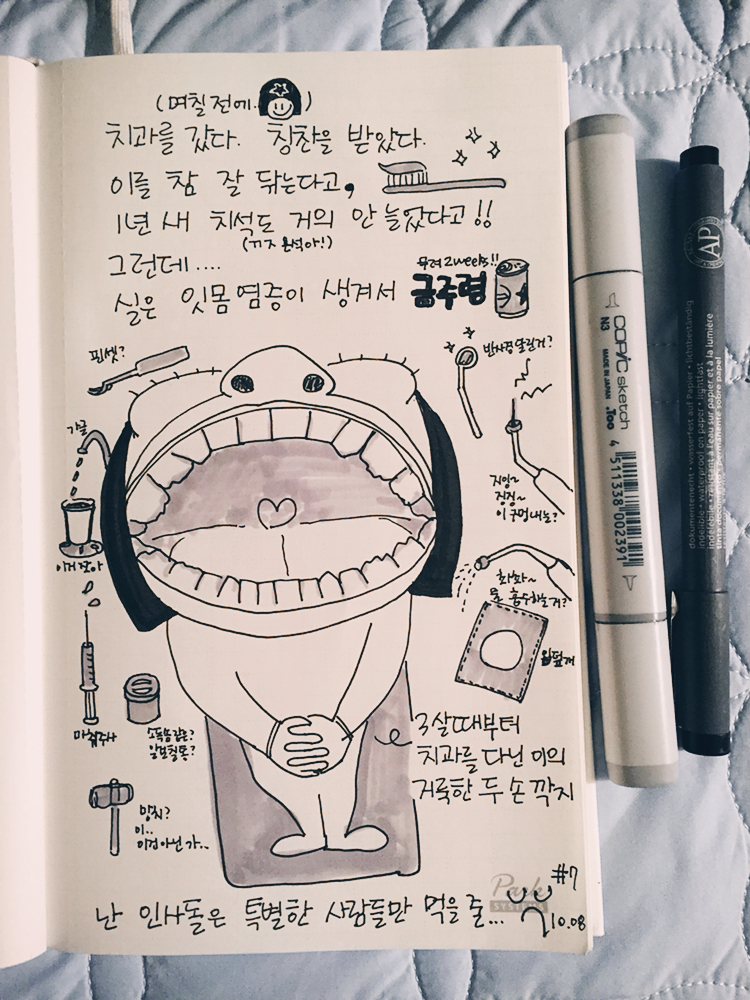 (며칠 전에. )
치과를 갔다. 칭찬을 받았다.
이를 참 잘 닦는다고,
1년 새 치석도 거의 안 늘었다고!!
그런데....
(기지 문석아!)
무려 2weeks!!
실은 잇몸 염증이 생겨서 금주령
핀셋?
반사경 달린거?
가글
지잉~
징징~
이 구멍내는?
이거 잖아
화화~
물 흡수하는거?
입덮개
마취주사
소독솜같은?
알보칠통?
3살때부터
치과를 다닌 이의
거룩한 두 손 깍지
망치?
이..
이건아닌가..
#7
난 인사돌은 특별한 사람들만 먹을 줄...
10.08
Park
SYSTEMS
COPIC sketch
N3
MADE IN JAPAN
.Too
4 511338 002391
AP
dokumentenecht • wasserfest auf Papier • lichtbeständig
indelible • waterproof on paper • lightfast
indélébile • résistant à l'eau sur papier et à la lumière
tinta documental • permanente sobre papel